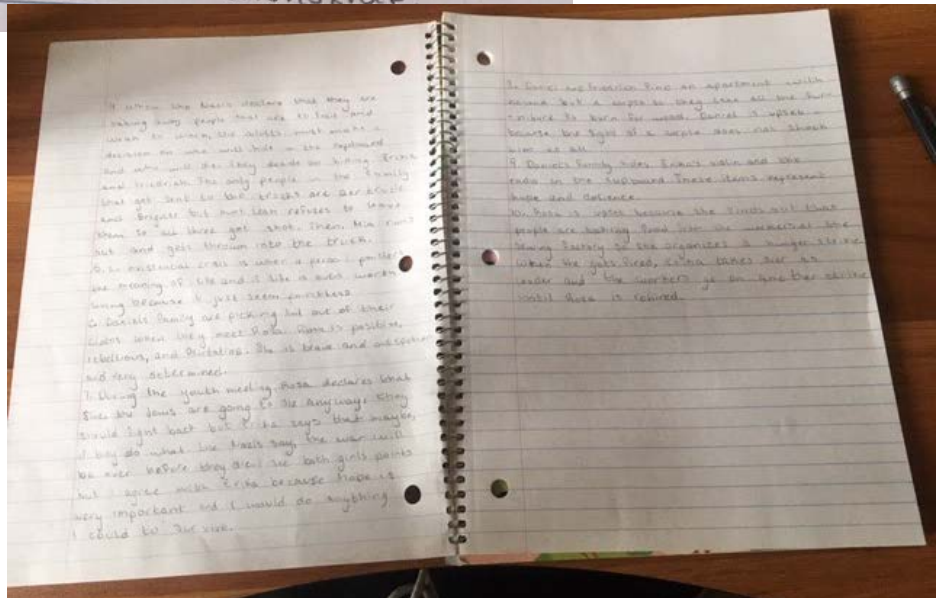 4. When the Nazis declare that they are
taking away people that are to frail and
weak to work, the adults must make a
decision on who will hide in the cupboard
and who will die. They decide on hiding Erika
and Friedrich. The only people in the family
that get sent to the trucks are
and Brigitte but refuses to leave
them so all three get shot. Then, Mia runs
out and gets thrown into the truck.
5. existential crisis is when a person
the meaning of life and if life is even worth
living because it just seem pointless
6. Daniel's family are picking out of their
when they meet Rosa. Rosa is positive,
rebellious, and She is brave and outspoken
and very determined.
7. During the youth meeting, Rosa declares that
since the Jews are going to die anyways they
should fight back but Erika says that maybe,
if they do what the Nazis say, the war will
be over before they die. I see both girls points
but I agree with Erika because hope is
very important and I would do anything
I could to survive.
8. Daniel and Friedrich find an apartment with
but a corpse so they take all the
to burn for wood. Daniel is upset
because the sight of a corpse does not shock
him at all.
9. Daniel's family hides Erika's violin and the
radio in the cupboard. These items represent
hope and defiance.
10. Rosa is upset because she finds out that
people are taking food from the the
sewing factory so she organizes a hunger strike
When she gets fired, Erika takes over as
leader and the workers go on another strike
until Rosa is rehired.